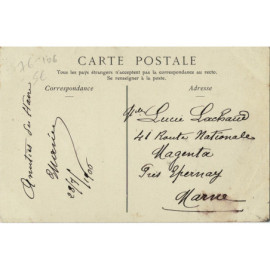 CARTE POSTALE
Tous les pays étrangers n'acceptent pas la correspondance au recto.
Se renseigner à la poste.
Correspondance
Adresse
Amitiés du Havre
1906
Mlle Lucie Lachaud
41 Route Nationale
Magenta
Près Epernay
Marne